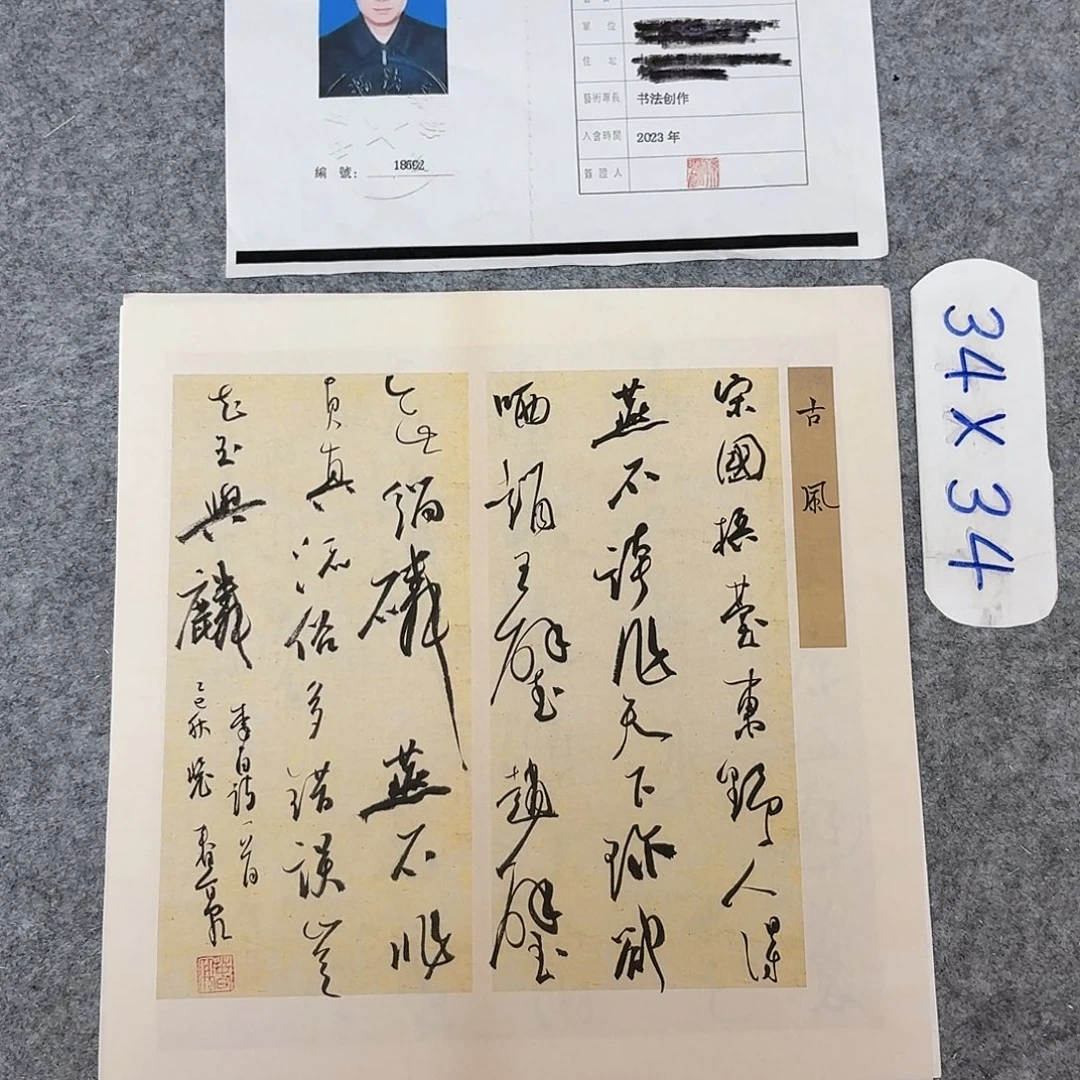 單 位
住 址
藝術專長 书法创作
入會時間 2023 年
簽 證 人
編 號: 18692
34 X 34
古風
宋國梧臺東野人得
燕石誇作天下珍卻
哂趙王璧趙璧
無緇磷燕石非
貞真流俗多錯誤豈
知玉與麟
李白詩一首
乙巳秋